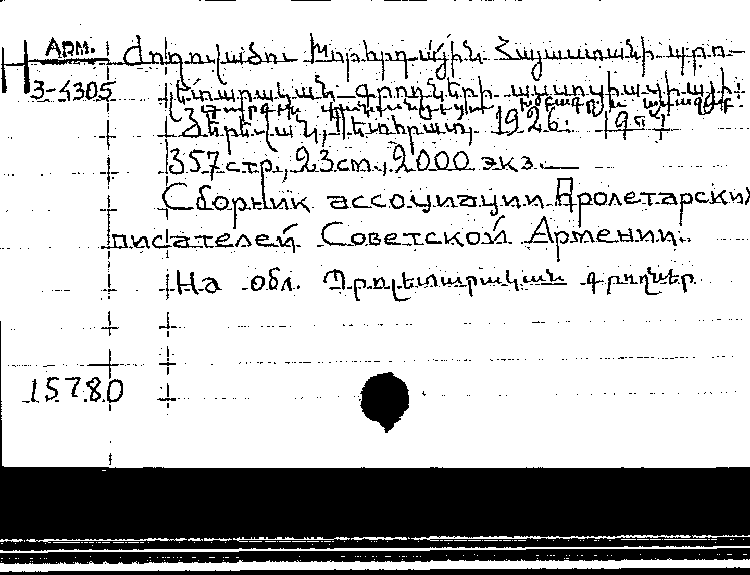 Арм. Ժողովածու Խորհրդային Հայաստանի պրո-
3-4305 լետարական գրողների ասոցիացիայի:
Յերևան, Պետհրատ, 1926:
357 стр., 23 см., 2000 экз.
Сборник ассоциации Пролетарских
писателей Советской Армении.
На обл. Պրոլետարական գրողներ
15780